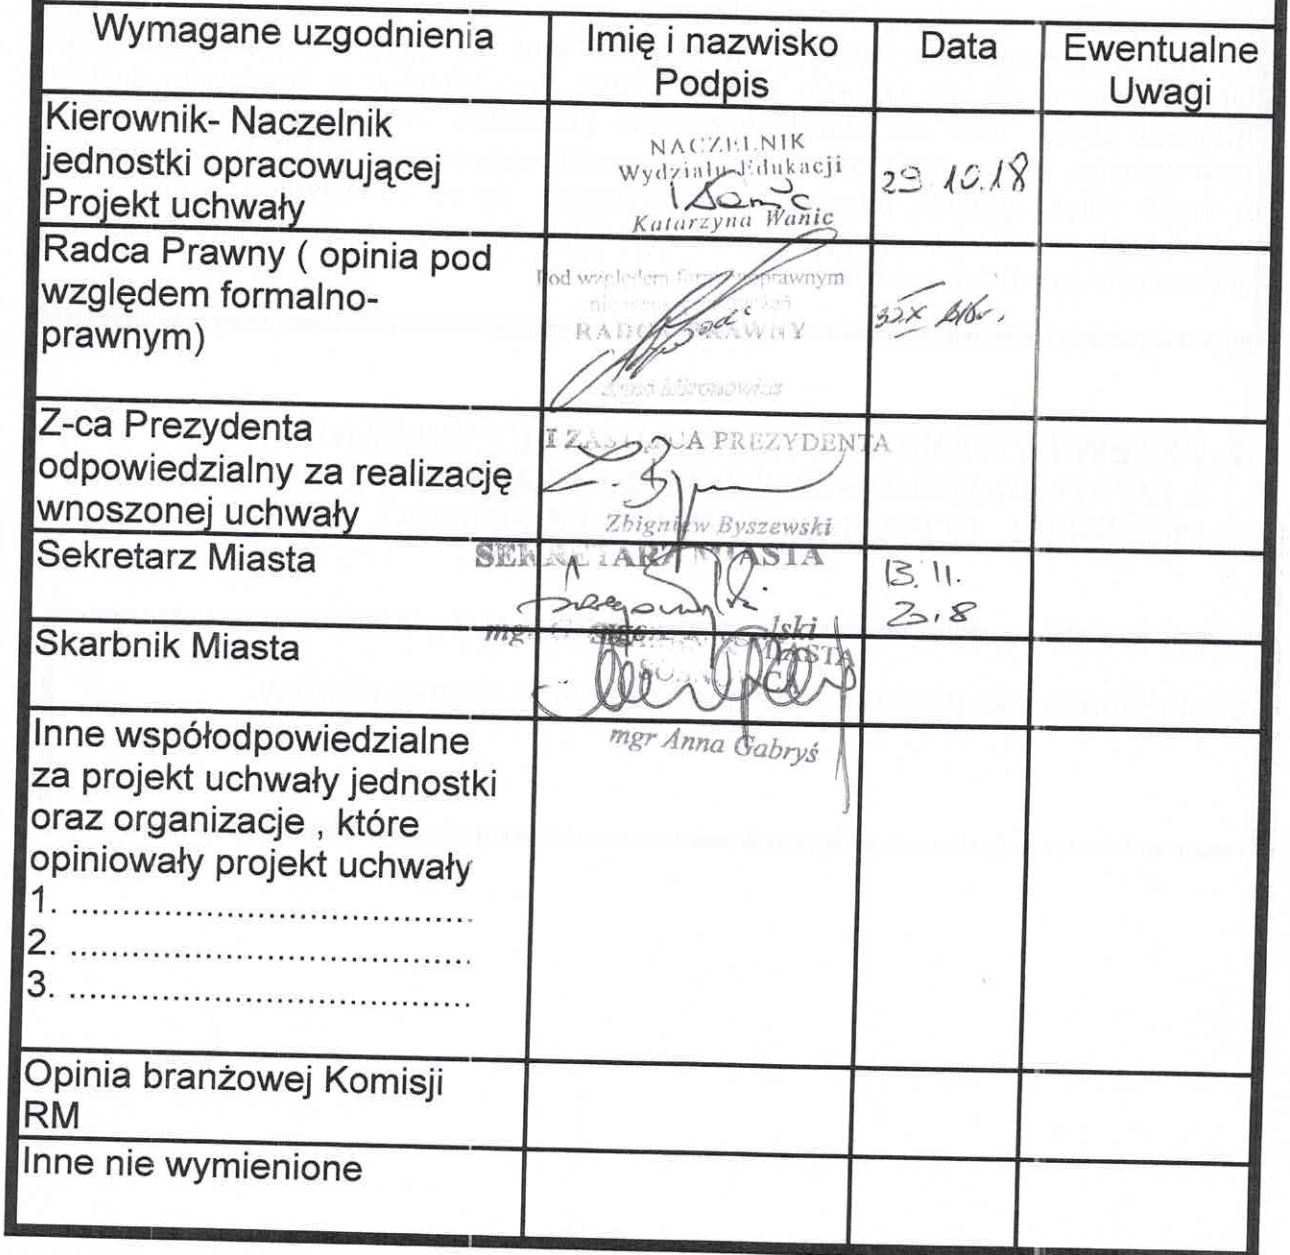 Wymagane uzgodnienia
Imię i nazwisko
Podpis
Data
Ewentualne
Uwagi
Kierownik- Naczelnik
jednostki opracowującej
Projekt uchwały
NACZELNIK
Wydziału Edukacji
Katarzyna Wanic
29 10.18
Radca Prawny ( opinia pod
względem formalno-
prawnym)
Pod względem formalnoprawnym
RADCA PRAWNY
Anna Mironowicz
Z-ca Prezydenta
odpowiedzialny za realizację
wnoszonej uchwały
I ZASTĘPCA PREZYDENTA
Zbigniew Byszewski
Sekretarz Miasta
SEKRETARZ MIASTA
mgr
13. 11.
2018
Skarbnik Miasta
MIASTA
mgr Anna Gabryś
Inne współodpowiedzialne
za projekt uchwały jednostki
oraz organizacje , które
opiniowały projekt uchwały
1. ........................................
2. ........................................
3. ........................................
Opinia branżowej Komisji
RM
Inne nie wymienione